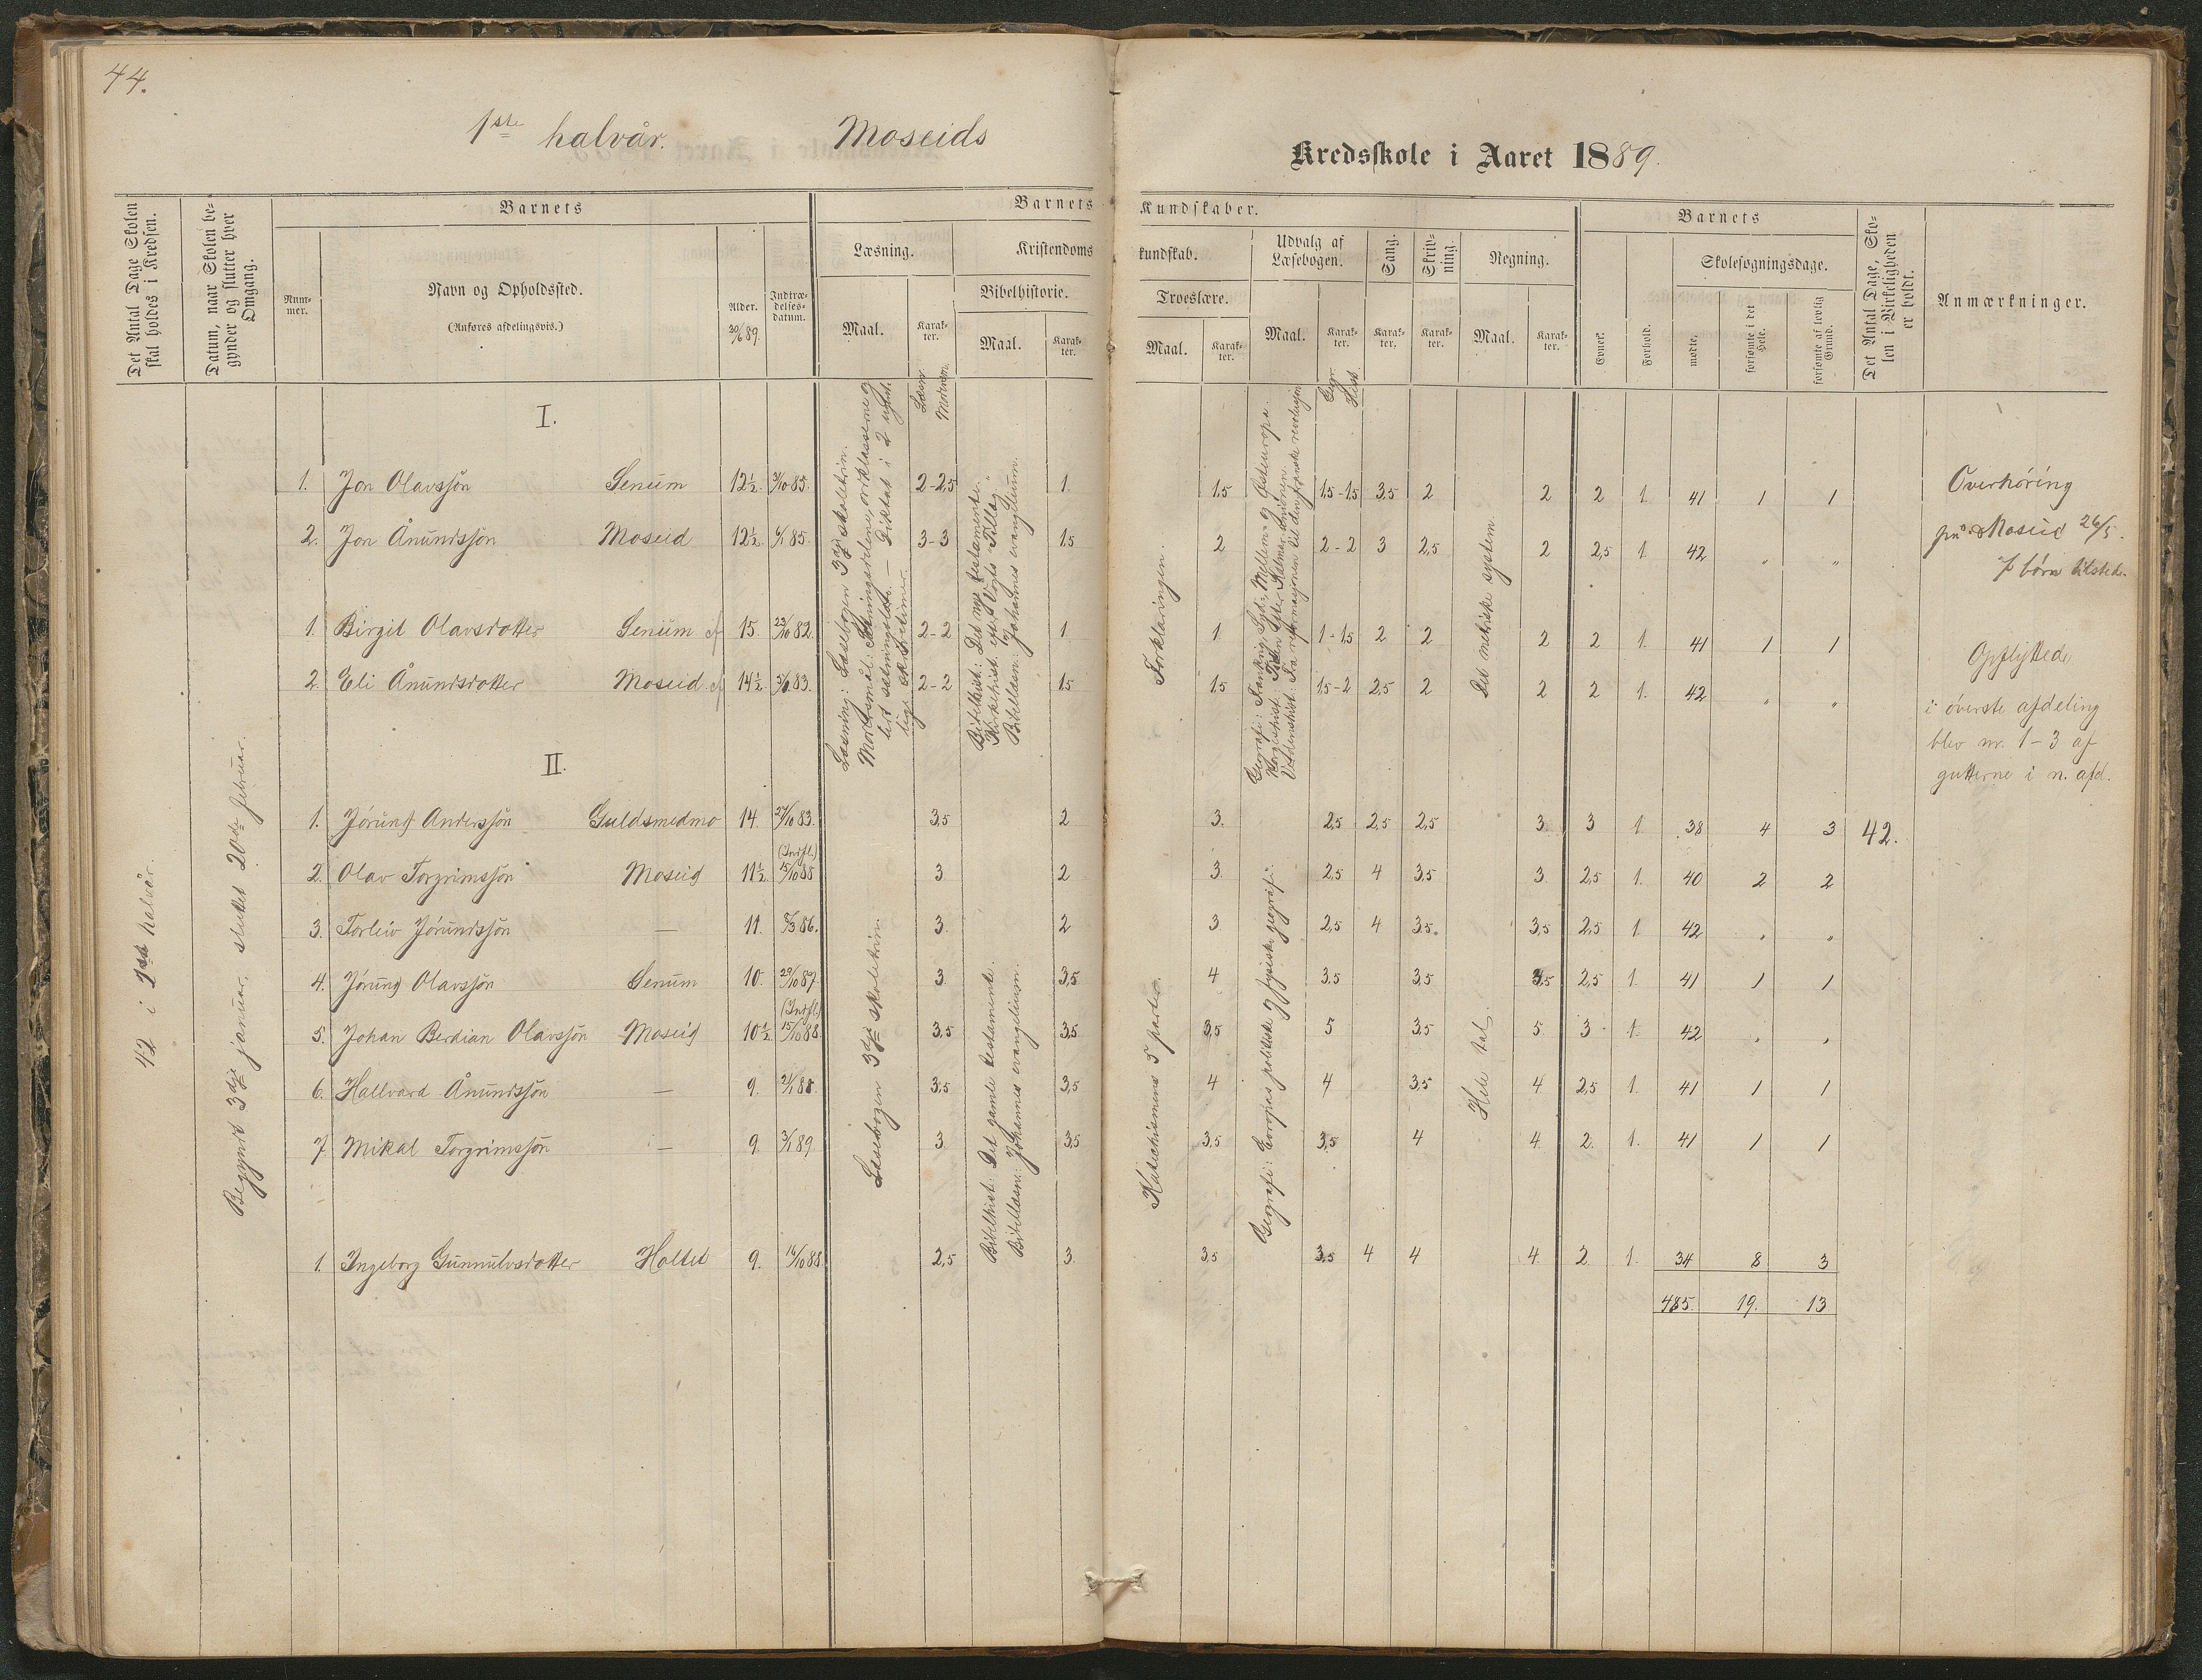 44.
1ste halvår. Moseids
Kredsskole i Aaret 1889.
Det Antal Dage Skolen skal holdes i Kredsen.
Datum, naar Skolen begynder og slutter hver Omgang.
Barnets
Barnets Kundskaber.
Barnets
Det Antal Dage, Skolen i Virkeligheden er holdt.
Anmærkninger.
Nummer.
Navn og Opholdssted.
(Anføres afdelingsvis.)
Alder. 30/6 89.
Indtrædelsesdatum.
Læsning.
Kristendomskundskab.
Udvalg af Læsebogen.
Sang.
Skrivning.
Regning.
Skolesøgningsdage.
Bibelhistorie.
Troeslære.
Maal. Karakter. Maal. Karakter. Maal. Karakter. Maal. Karakter. Karakter. Karakter. Maal. Karakter.
Evner. Forhold. mødte. forsømte i det Hele. forsømte af lovlig Grund.
Læsn. Modersm.
Geogr. Hist.
42 i 1ste halvår.
Begyndt 3dje januar, sluttet 20de februar.
I.
1. Jon Olavssøn Senum 12½. 31/10 85. 2-2,5 1. 1,5 1,5-1,5 3,5 2 2 2 1. 41 1 1
2. Jon Ånundssøn Moseid 12½. 4/1 85. 3-3 1,5 2 2-2 3 2,5 2 2,5 1. 42 " "
1. Birgit Olavsdotter Senum 15. 23/10 82. 2-2 1. 1. 1-1,5 2 2 2 2 1. 41 1 1
2. Eli Ånundsdotter Moseid 14½. 83. 2-2 1,5 1,5 1,5-2 2,5 2 2 2 1. 42 " "
Læsning: Læsebogen 3dje skoletrin.
Modersmål: Sætningsdelene, ordklasserne og
let sætningslære. – Diktat i 2 ugentlige
Bibelhist: Det nye testamente.
Kirkehist. efter Vogts "Tillæg"
Bibellæsn: Johannes evangelium.
Forklaringen.
Geografi: Frankrig, Syd-, Mellem- og Østeuropa.
Norgeshist: Tiden efter Kalmarunionen.
Verdenshist: Fra reformasjonen til den franske revolusjon
Det metriske system.
II.
1. Jørund Anderssøn Guldsmedmo 14. 27/10 83. 3,5 2 3. 2,5 2,5 2,5 3. 3 1. 38 4 3 42.
2. Olav Torgrimssøn Moseid 11½. (Indfl.) 15/10 88 3 2 3. 2,5 4 3,5 3. 2,5 1. 40 2 2
3. Torleiv Jørundssøn — 11. 86. 3. 2 3. 2,5 4 3,5. 3,5 2,5 1. 42 " "
4. Jørund Olavssøn Senum 10. 29/10 87. 3 3,5 4 3,5 3,5 3,5 2,5 1. 41 1 1
5. Johan Berdian Olavssøn Moseid 10½. (Indfl.) 15/10 88. 3,5 3,5 3,5 5 3,5 5 3 1. 42 " "
6. Hallvard Ånundssøn — 9. 88. 3,5 3,5 4 4 3,5 4 2,5 1. 41 1 1
7. Mikal Torgrimssøn — 9. 3/1 89. 3. 3,5 3,5 3,5 4 4. 2. 1. 41 1 1
1. Ingeborg Gunnulvsdotter Holtet 9. 14/10 88. 2,5 3. 3,5 3,5 4 4 4. 2 1. 34 8 3
485. 19. 13
Læsebogen 3dje skoletrin.
Bibelhist: Det gamle testamente.
Bibellæsn: Johannes evangelium.
Katechismens 5 parter.
Geografi: Evropas politiske og fysiske geografi.
Hele tal.
Overhøring
på Moseid 26/5.
7 børn tilstede.
Opflyttede
i øverste afdeling
blev nr. 1-3 af
gutterne i n. afd.